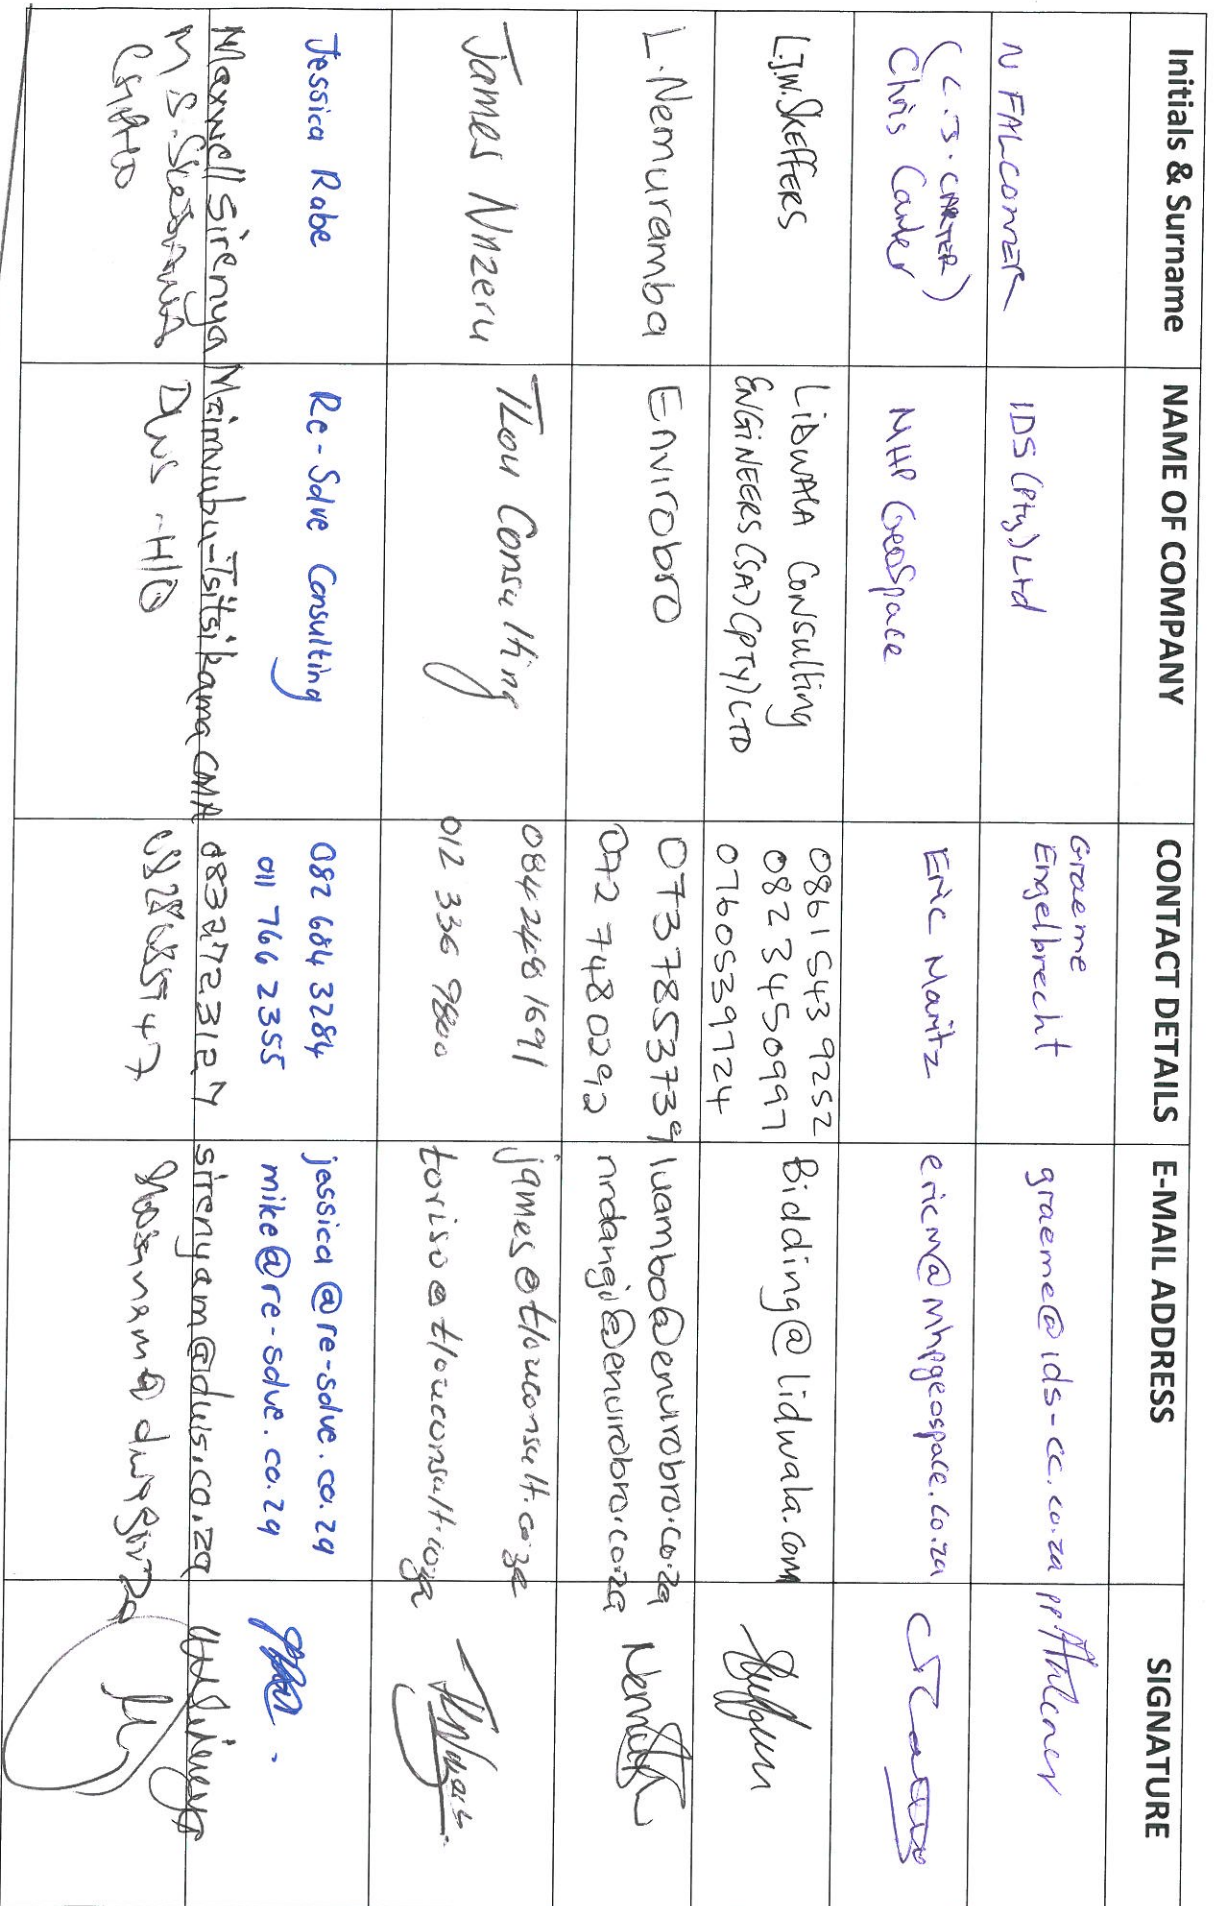 Initials & Surname NAME OF COMPANY CONTACT DETAILS E-MAIL ADDRESS SIGNATURE
N FALCONER IDS (Pty) Ltd Graeme Engelbrecht graeme@ids-cc.co.za pp
(C.J. CARTER)
Chris Carter MHP GeoSpace Eric Maritz ericm@mhpgeospace.co.za
L.J.W. SKEFFERS LIDWALA CONSULTING ENGINEERS (SA) (PTY) LTD 0861 543 9252 Bidding@lidwala.com
082 345 0997
0760539724
L. Nemuramba Envirobro 0737853739 luambo@envirobro.co.za
072 748 0292 nndangi@envirobro.co.za
James Nnzeru Tlou Consulting 084 248 1691 james@tlouconsult.co.za
012 336 9800 toriso@tlouconsult.co.za
Jessica Rabe Re-Solve Consulting 082 684 3284 jessica@re-solve.co.za
011 766 2355 mike@re-solve.co.za
Maxwell Sirenya Mzimvubu-Tsitsikama CMA 0832723127 sirenyam@dws.co.za
M S. DWS - H/O